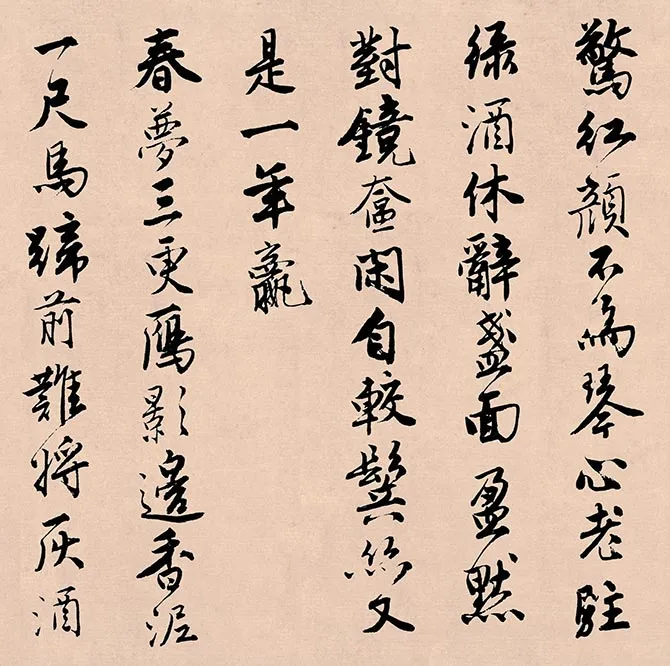 驚紅顏不為琴心老駐
綠酒休辭盞面盈默
對鏡奩閑自較鬢絲又
是一年贏
春夢三更雁影邊香泥
一尺馬蹄前難將灰酒